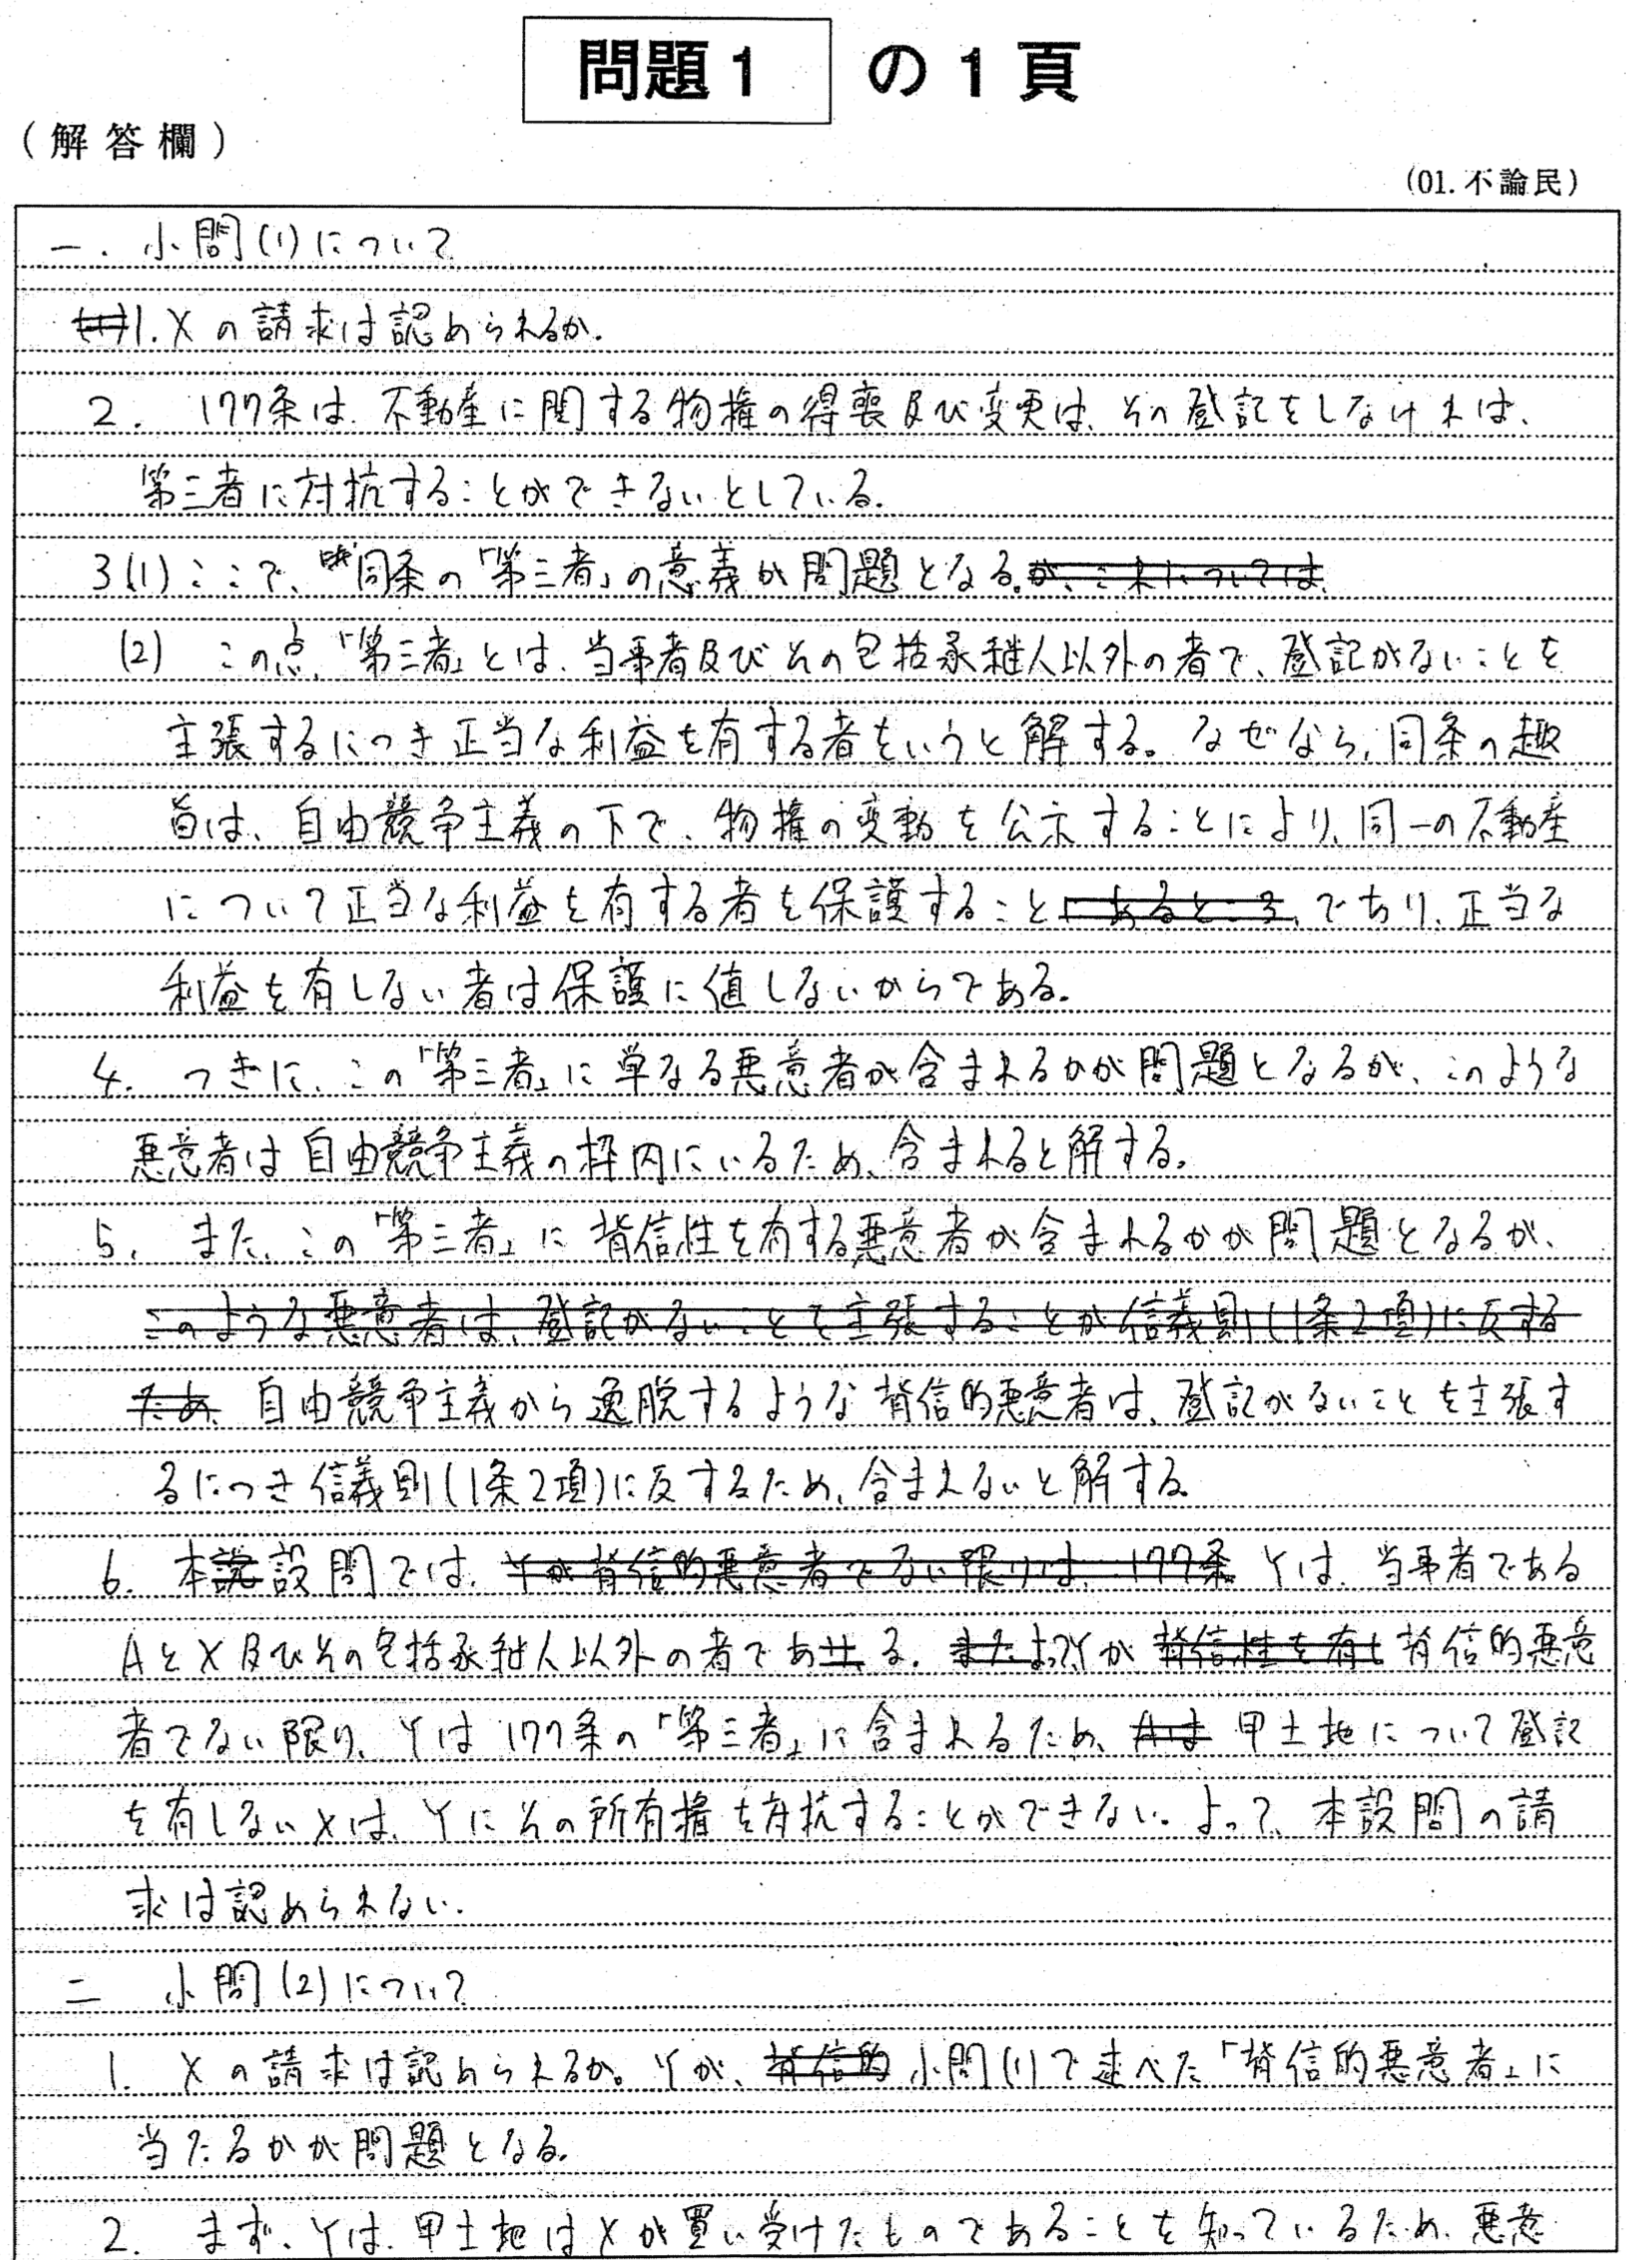 問題1 の1頁
(解答欄)
(01.不論民)
一. 小問(1)について
1. Xの請求は認められるか.
2. 177条は、不動産に関する物権の得喪及び変更は、その登記をしなければ、
第三者に対抗することができないとしている.
3(1) ここで、同条の「第三者」の意義が問題となる。が、これについては、
(2) この点、「第三者」とは、当事者及びその包括承継人以外の者で、登記がないことを
主張するにつき正当な利益を有する者をいうと解する。なぜなら、同条の趣
旨は、自由競争主義の下で、物権の変動を公示することにより、同一の不動産
について正当な利益を有する者を保護することにあるところ、であり、正当な
利益を有しない者は保護に値しないからである.
4. つぎに、この「第三者」に単なる悪意者が含まれるかが問題となるが、このような
悪意者は自由競争主義の枠内にいるため、含まれると解する.
5. また、この「第三者」に背信性を有する悪意者が含まれるかが問題となるが、
このような悪意者は、登記がないことを主張することが信義則(1条2項)に反する
ため、自由競争主義から逸脱するような背信的悪意者は、登記がないことを主張す
るにつき信義則(1条2項)に反するため、含まれないと解する.
6. 本設問では、Yが背信的悪意者でない限りは、177条 Yは、当事者である
AとX及びその包括承継人以外の者である. また よって、Yが 背信性を有し 背信的悪意
者でない限り、Yは177条の「第三者」に含まれるため、Aは 甲土地について登記
を有しないXは、Yにその所有権を対抗することができない。よって、本設問の請
求は認められない.
二 小問(2)について
1. Xの請求は認められるか。Yが、背信的 小問(1)で述べた「背信的悪意者」に
当たるかが問題となる.
2. まず、Yは、甲土地はXが買い受けたものであることを知っているため、悪意